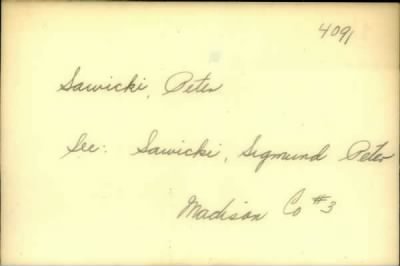 4091
Sawicki, Peter
See: Sawicki, Sigmund Peter
Madison Co #3